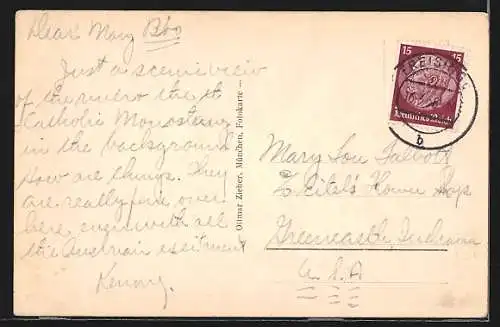 Dear Mary
Just a scenic view
of the
Catholic Monastery
in the background
How are things. They
are really fine over
here even with all
the Austrian exsitment
Kenny.
Ottmar Zieher, München, Fotokarte
15 15
Deutsches Reich
b
Mary Lou Talbott
Eitel's Flower Shop
Greencastle, Indiana
U.S.A